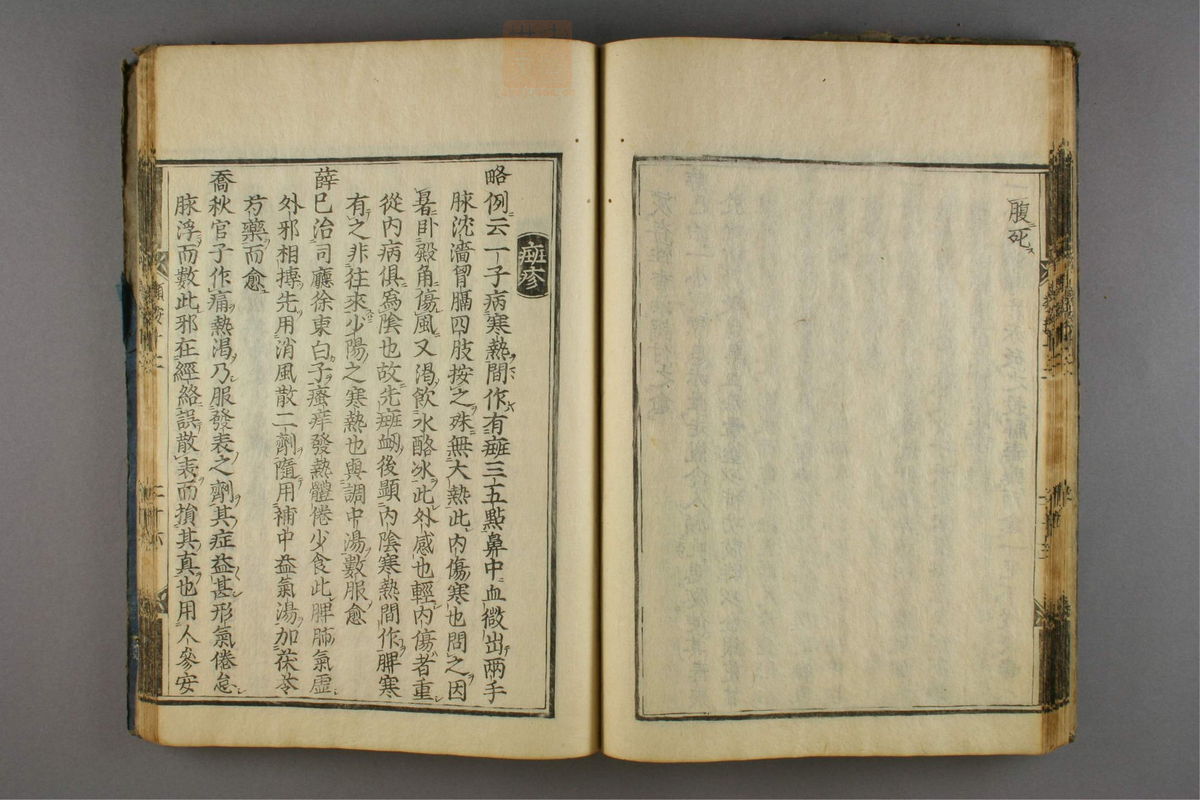 一腹死
癍疹
略例云一子病寒熱間作有癍三五點鼻中血微出兩手
脉沈濇胃膈四肢按之殊無大熱此内傷寒也問之因
暑卧殿角傷風又渇飲氷酪氷此外感也輕内傷者重
從内病俱爲陰也故先癍衂後顯内陰寒熱間作脾寒
有之非往來少陽之寒熱也與調中湯數服愈
薛已治司廳徐東白子瘙痒發熱體倦少食此脾肺氣虚
外邪相搏先用消風散二劑隨用補中益氣湯加茯苓
芍藥而愈
喬秋官子作痛熱渇乃服發表之劑其症益甚形氣倦怠
脉浮而數此邪在經絡誤散表而損其真也用人參安